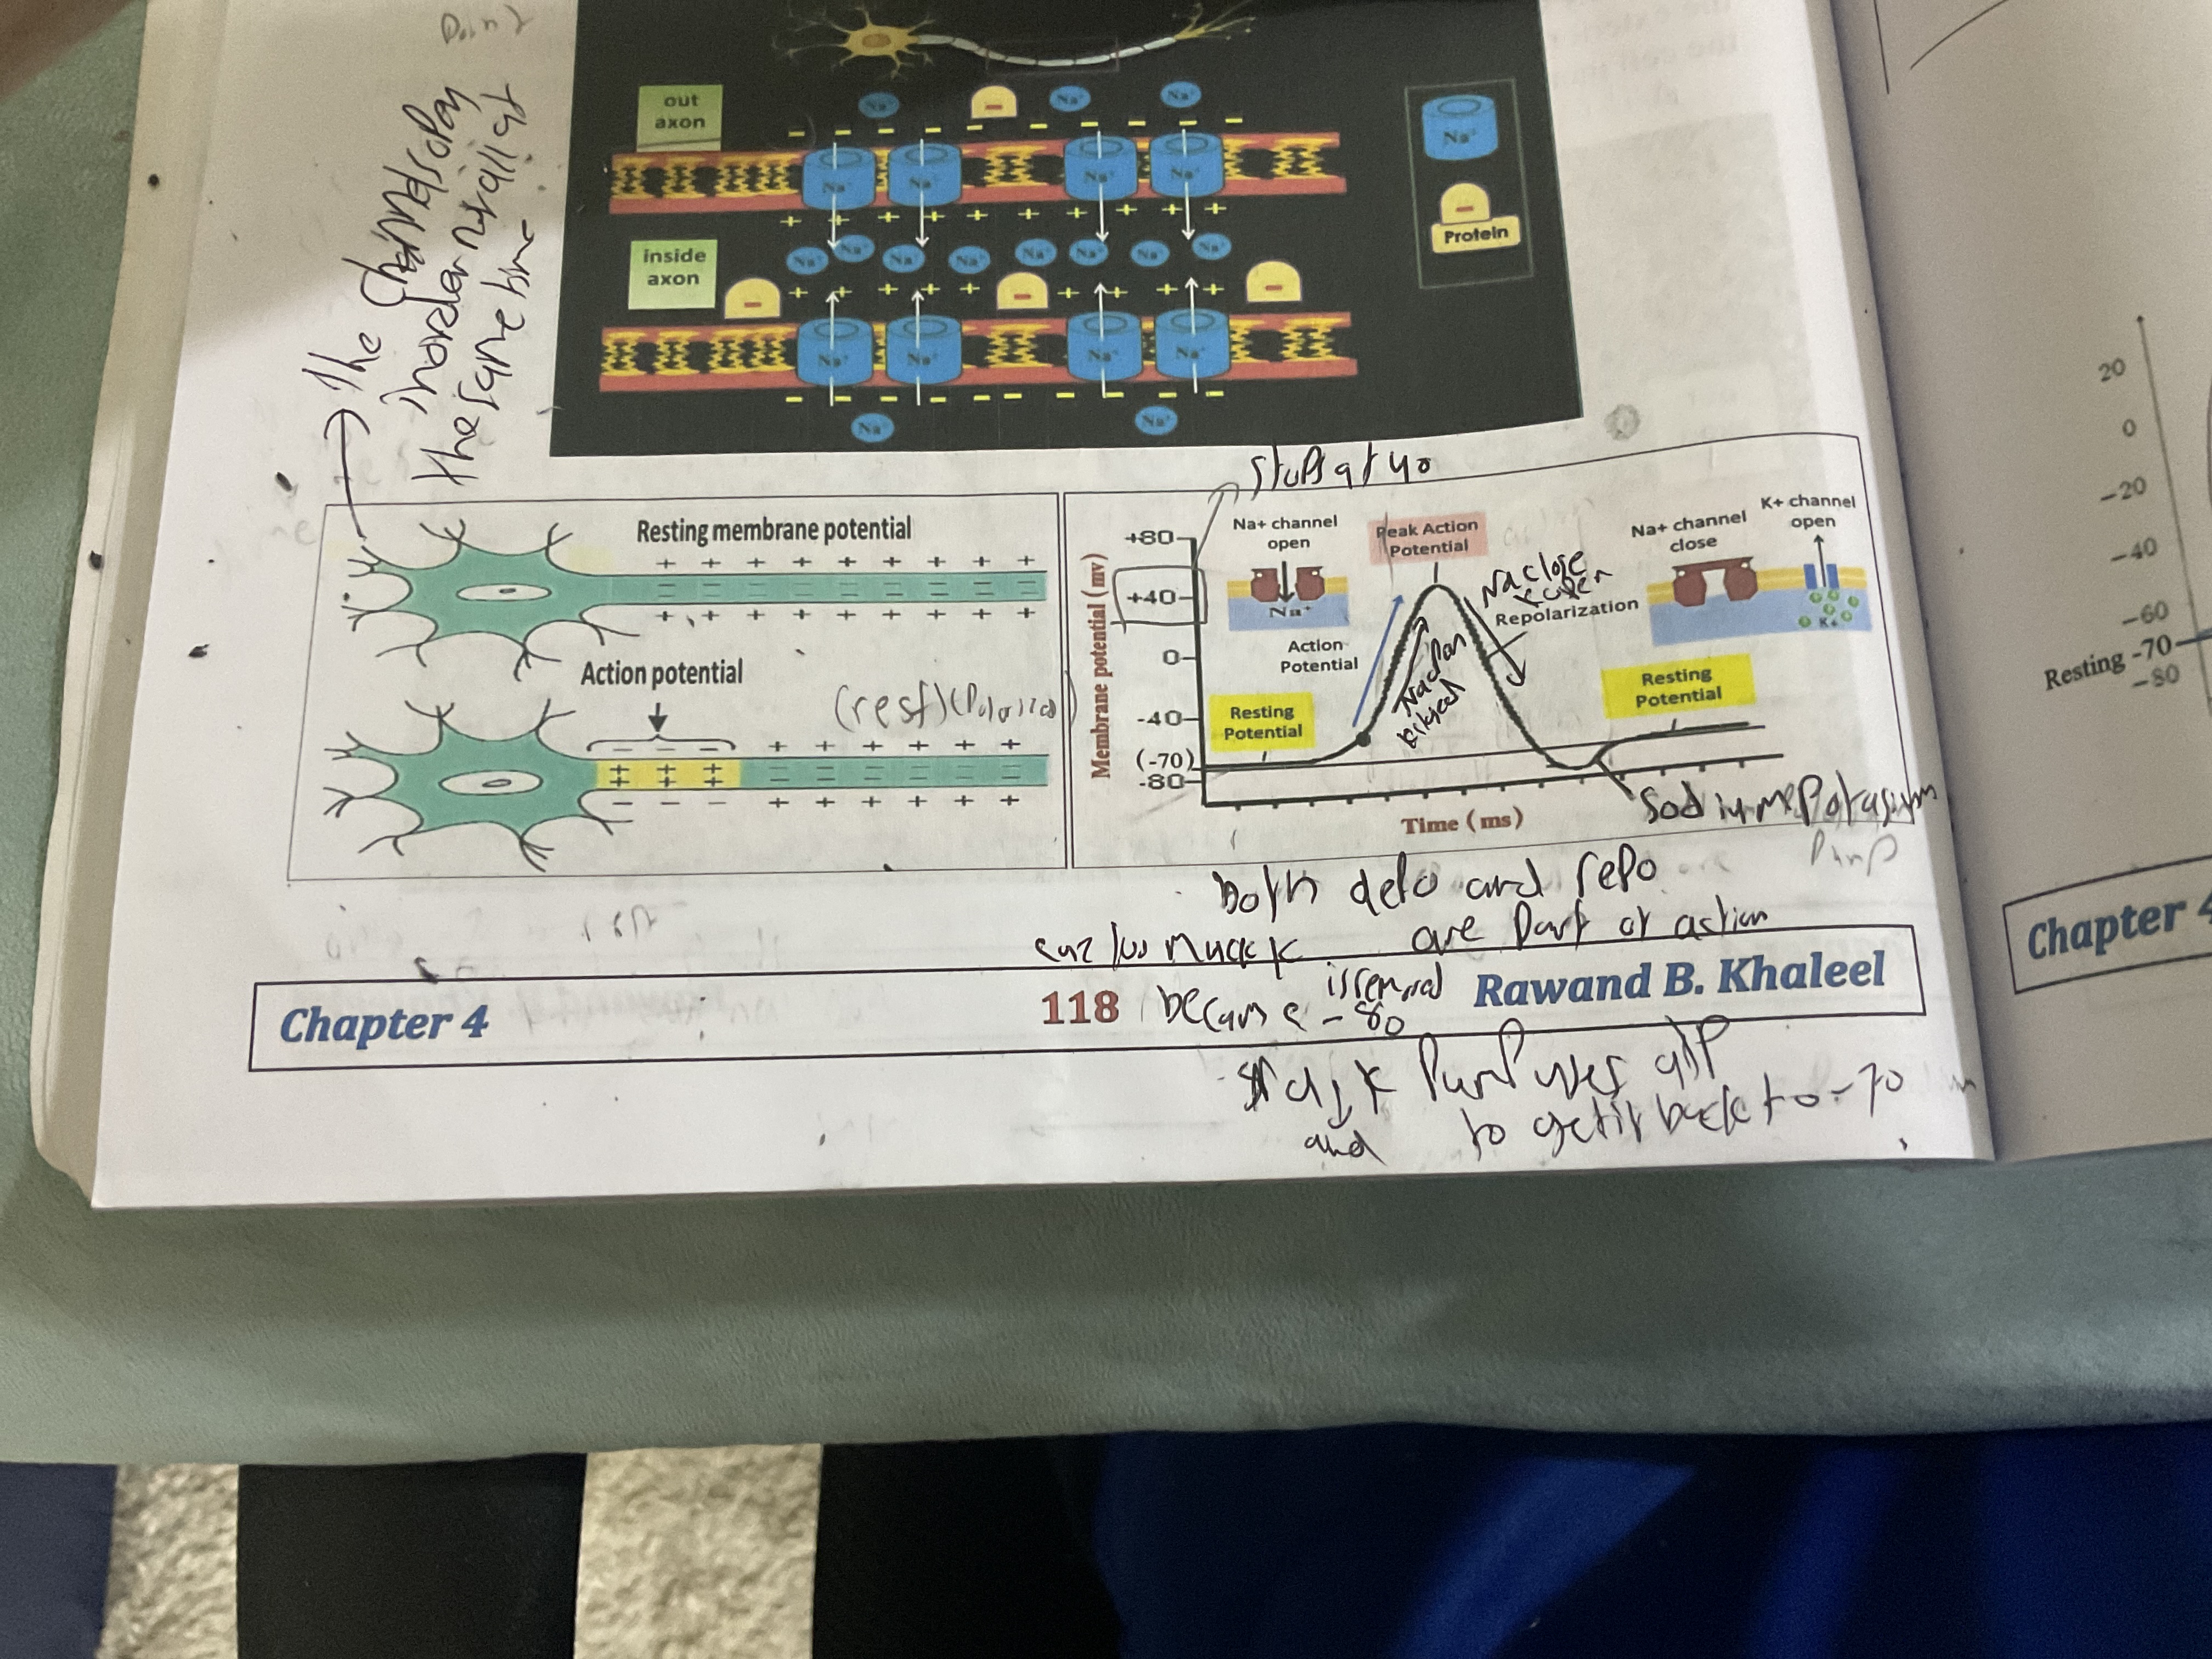 out
axon
Na+
Na+
Na+
Na+
Na+
Na+
Na+
Na+
Protein
inside
axon
Na+
Na+
Na+
Na+
Na+
Na+
Na+
Na+
Na+
Na+
Na+
Na+
Na+
Na+
The Channels open
in order not all at
the same time
stops at 40
Resting membrane potential
Action potential
(rest) (Polarized)
Membrane potential (mv)
+80
+40
0
-40
(-70)
-80
Na+ channel
open
Na+
Peak Action
Potential
Action
Potential
Na close
K open
Repolarization
Na+ channel
close
K+ channel
open
K+
Resting
Potential
Resting
Potential
Time (ms)
Sodium Potassium
Pump
both depo and repo
are part of action
K
because -80
Chapter 4
118
Rawand B. Khaleel
K Pump uses atp
and
to get it back to -70
20
0
-20
-40
-60
Resting -70
-80
Chapter 4